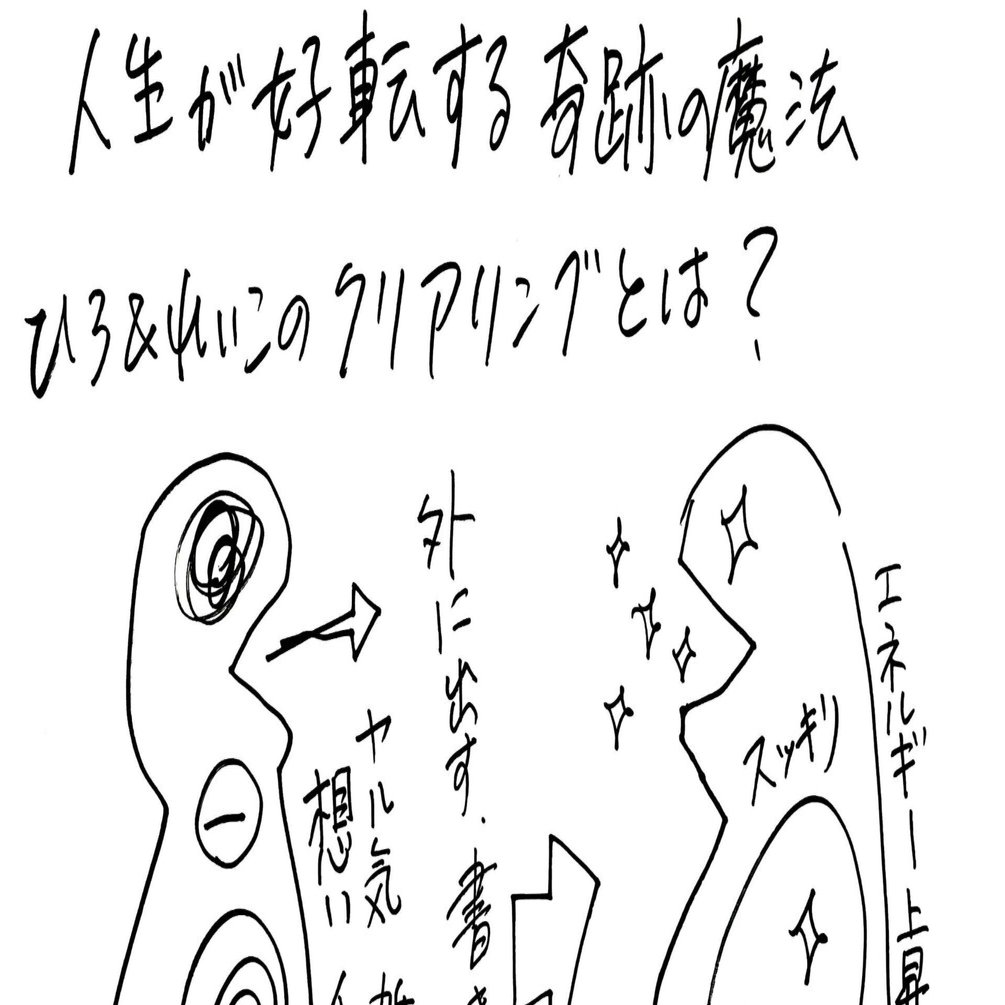 人生が好転する奇跡の魔法
ひろ&れいこのクリアリングとは?
外に出す、書き
ヤル気
想い
スッキリ
エネルギー上昇